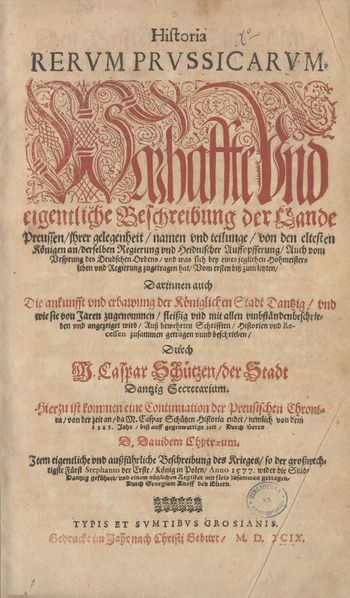 Historia
RERVM PRVSSICARVM,
Warhaffte Vnd
eigentliche Beschreibung der Lande
Preussen / jhrer gelegenheit / namen vnd teilunge / von den eltesten
Königen an / derselben Regierung vnd Heidnischer Auffopfferung / Auch vom
Vrsprung des Deudschen Ordens / vnd was sich bey eines jeglichen Hohmeisters
leben vnd Regierung zugetragen hat / Vom ersten bis zum letzten /
Darinnen auch
Die ankunfft vnd erbawung der Königlichen Stadt Dantzig / vnd
wie sie von Jaren zugenommen / fleißig vnd mit allen vmbständen beschrie-
ben vnd angezeiget wird / Auß bewehrten Schrifften / Historien vnd Re-
cessen zusammen getragen vnnd beschrieben /
Durch
M. Caspar Schützen / der Stadt
Dantzig Secretarium.
Hierzu ist kommen eine Continuation der Preusischen Chroni-
ca / von der zeit an / da M. Caspar Schützen Historia endet / nemlich von dem
1525. Jahr / biß auff gegenwertige zeit / Durch Herrn
D. Davidem Chytræum.
Item eigentliche vnd außführliche Beschreibung des Krieges / so der großmech-
tigste Fürst Stephanus der Erste / König in Polen / Anno 1577. wider die Stad /
Dantzig geführet / vnd einem nützlichen Register mit fleis zusammen getragen /
Durch Georgium Knoff von Eltern.
TYPIS ET SVMTIBVS GROSIANIS.
Gedruckt im Jahr nach Christi Geburt / M. D. XCIX.